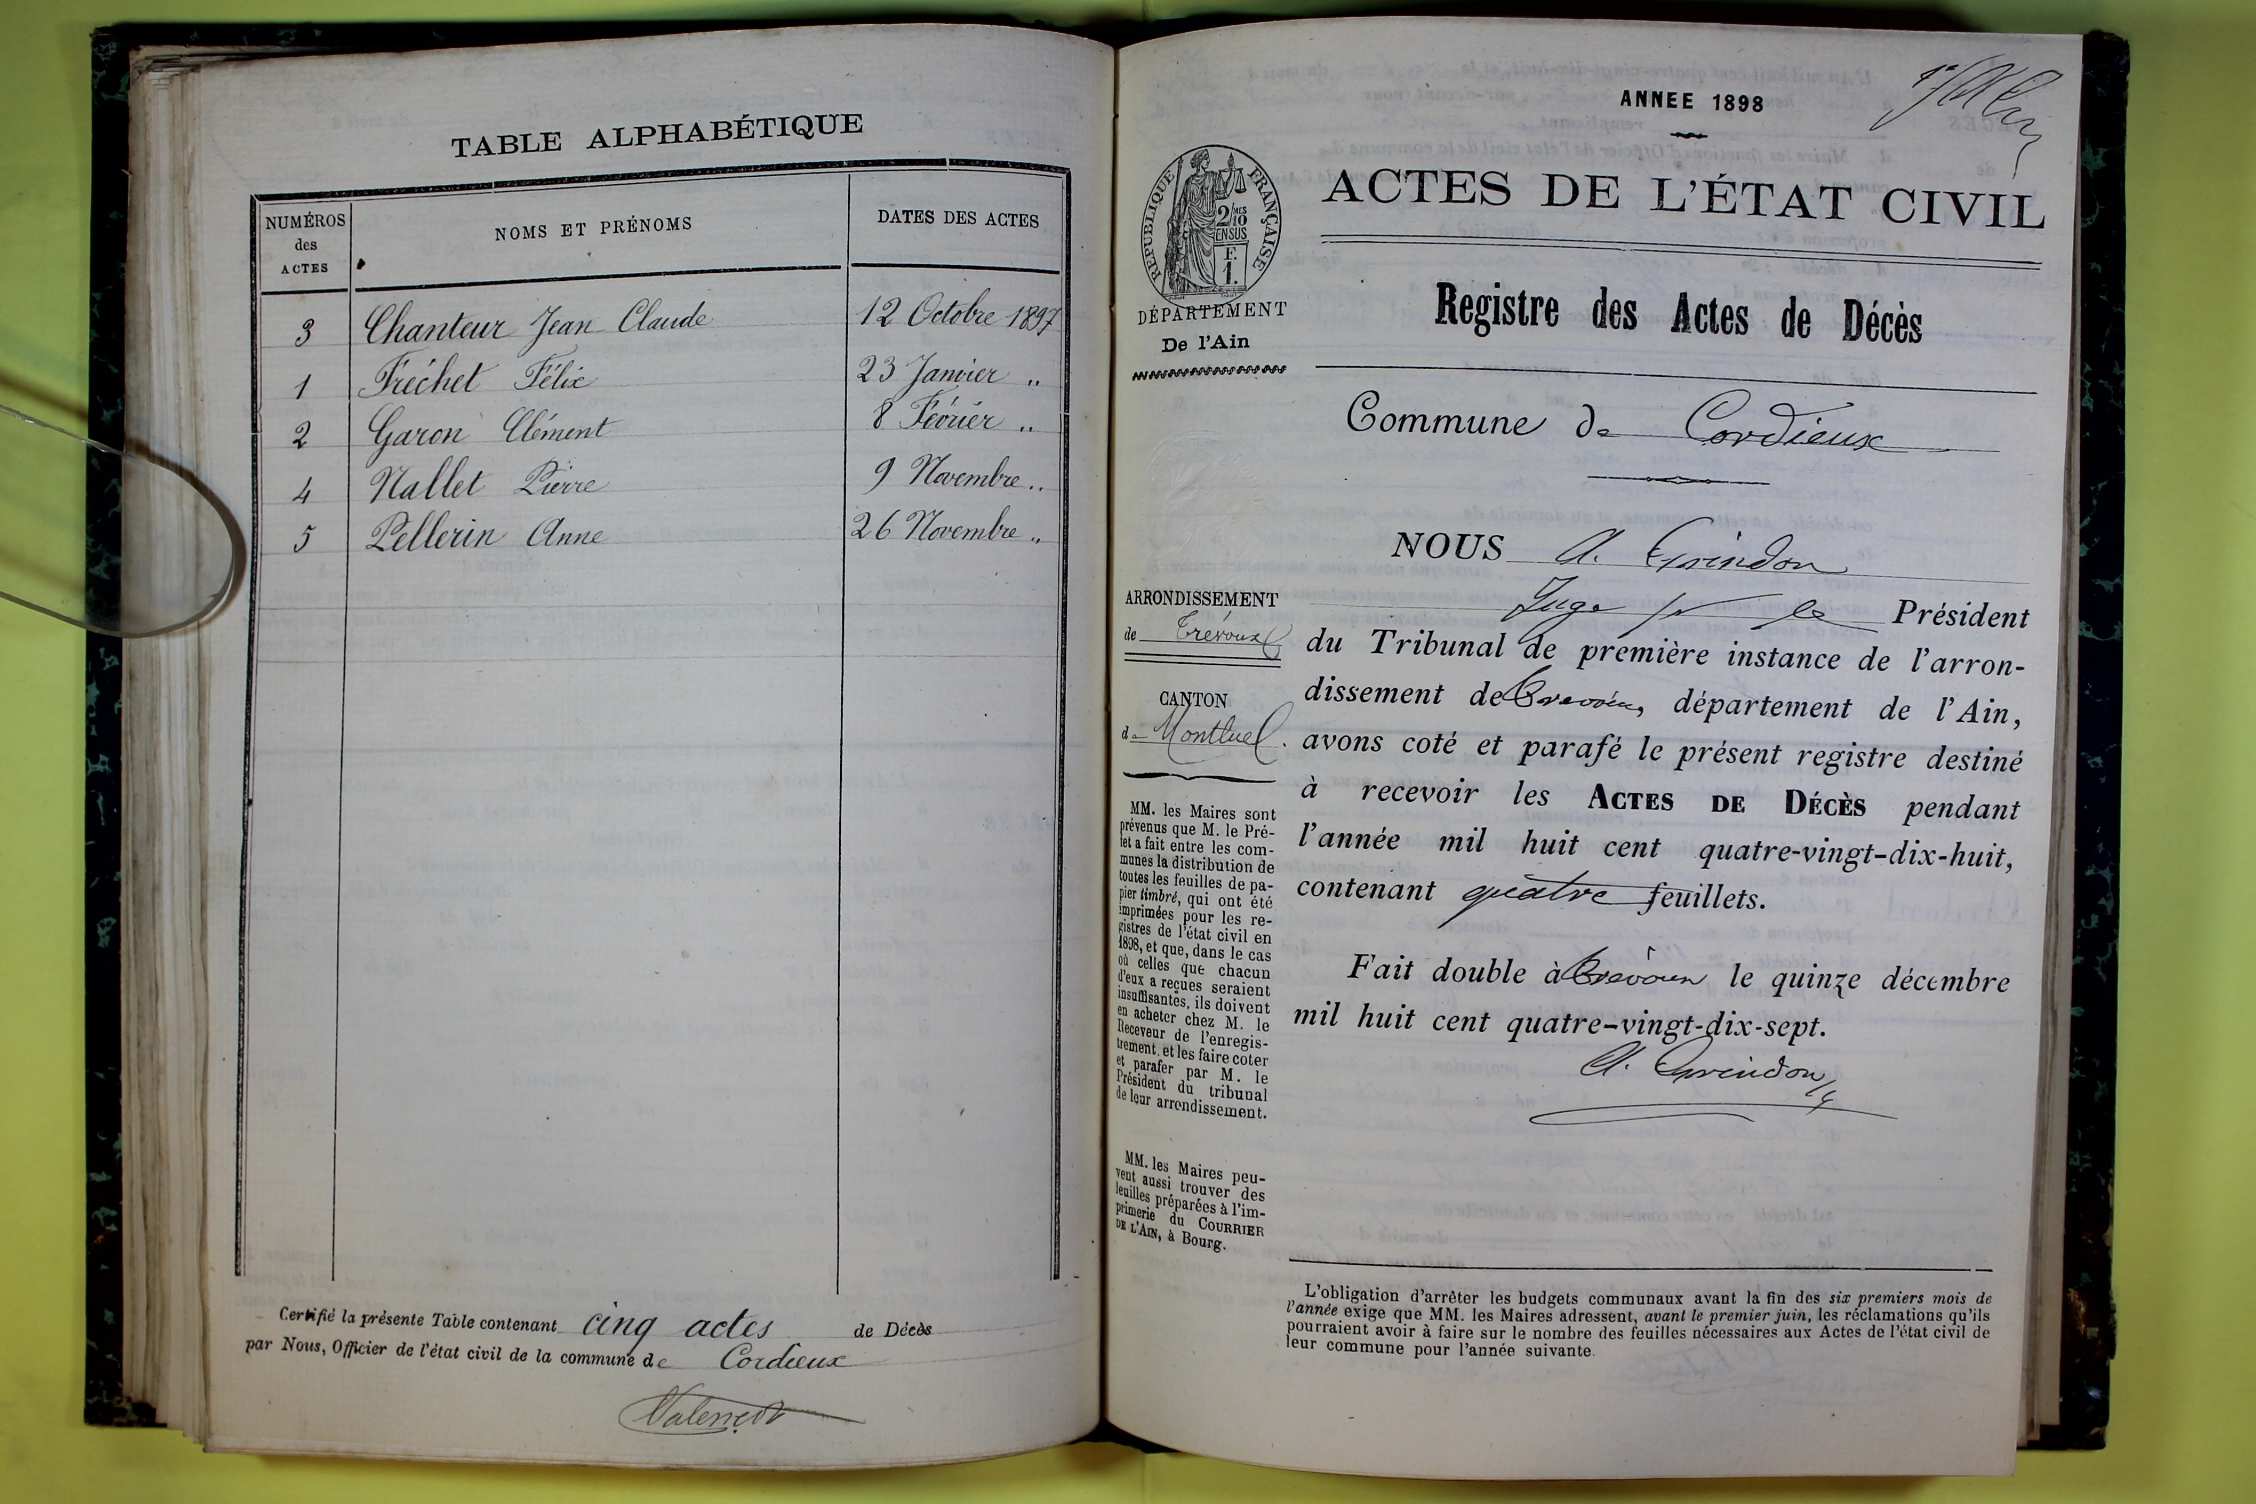 TABLE ALPHABÉTIQUE
NUMÉROS des ACTES
NOMS ET PRÉNOMS
DATES DES ACTES
3 Chanteur Jean Claude 12 Octobre 1897
1 Fréchet Félix 23 Janvier "
2 Garon Clément 8 Février "
4 Nallet Pierre 9 Novembre "
5 Pellerin Anne 26 Novembre "
Certifié la présente Table contenant cinq actes de Décès
par Nous, Officier de l'état civil de la commune de Cordieux
ANNEE 1898
ACTES DE L'ÉTAT CIVIL
RÉPUBLIQUE FRANÇAISE
2/10MES
EN SUS
F.
1.
DÉPARTEMENT
De l'Ain
Registre des Actes de Décès
Commune de Cordieux
NOUS A. Grindon
Juge pr le Président
du Tribunal de première instance de l'arron-
dissement de Trévoux, département de l'Ain,
avons coté et parafé le présent registre destiné
à recevoir les ACTES DE DÉCÈS pendant
l'année mil huit cent quatre-vingt-dix-huit,
contenant quatre feuillets.
Fait double à Trévoux le quinze décembre
mil huit cent quatre-vingt-dix-sept.
A. Grindon
ARRONDISSEMENT
de Trévoux
CANTON
de Montluel.
MM. les Maires sont
prévenus que M. le Pré-
fet a fait entre les com-
munes la distribution de
toutes les feuilles de pa-
pier timbré, qui ont été
imprimées pour les re-
gistres de l'état civil en
1898, et que, dans le cas
où celles que chacun
d'eux a reçues seraient
insuffisantes, ils doivent
en acheter chez M. le
Receveur de l'enregis-
trement, et les faire coter
et parafer par M. le
Président du tribunal
de leur arrondissement.
MM. les Maires peu-
vent aussi trouver des
feuilles préparées à l'im-
primerie du COURRIER
DE L'AIN, à Bourg.
L'obligation d'arrêter les budgets communaux avant la fin des six premiers mois de
l'année exige que MM. les Maires adressent, avant le premier juin, les réclamations qu'ils
pourraient avoir à faire sur le nombre des feuilles nécessaires aux Actes de l'état civil de
leur commune pour l'année suivante.